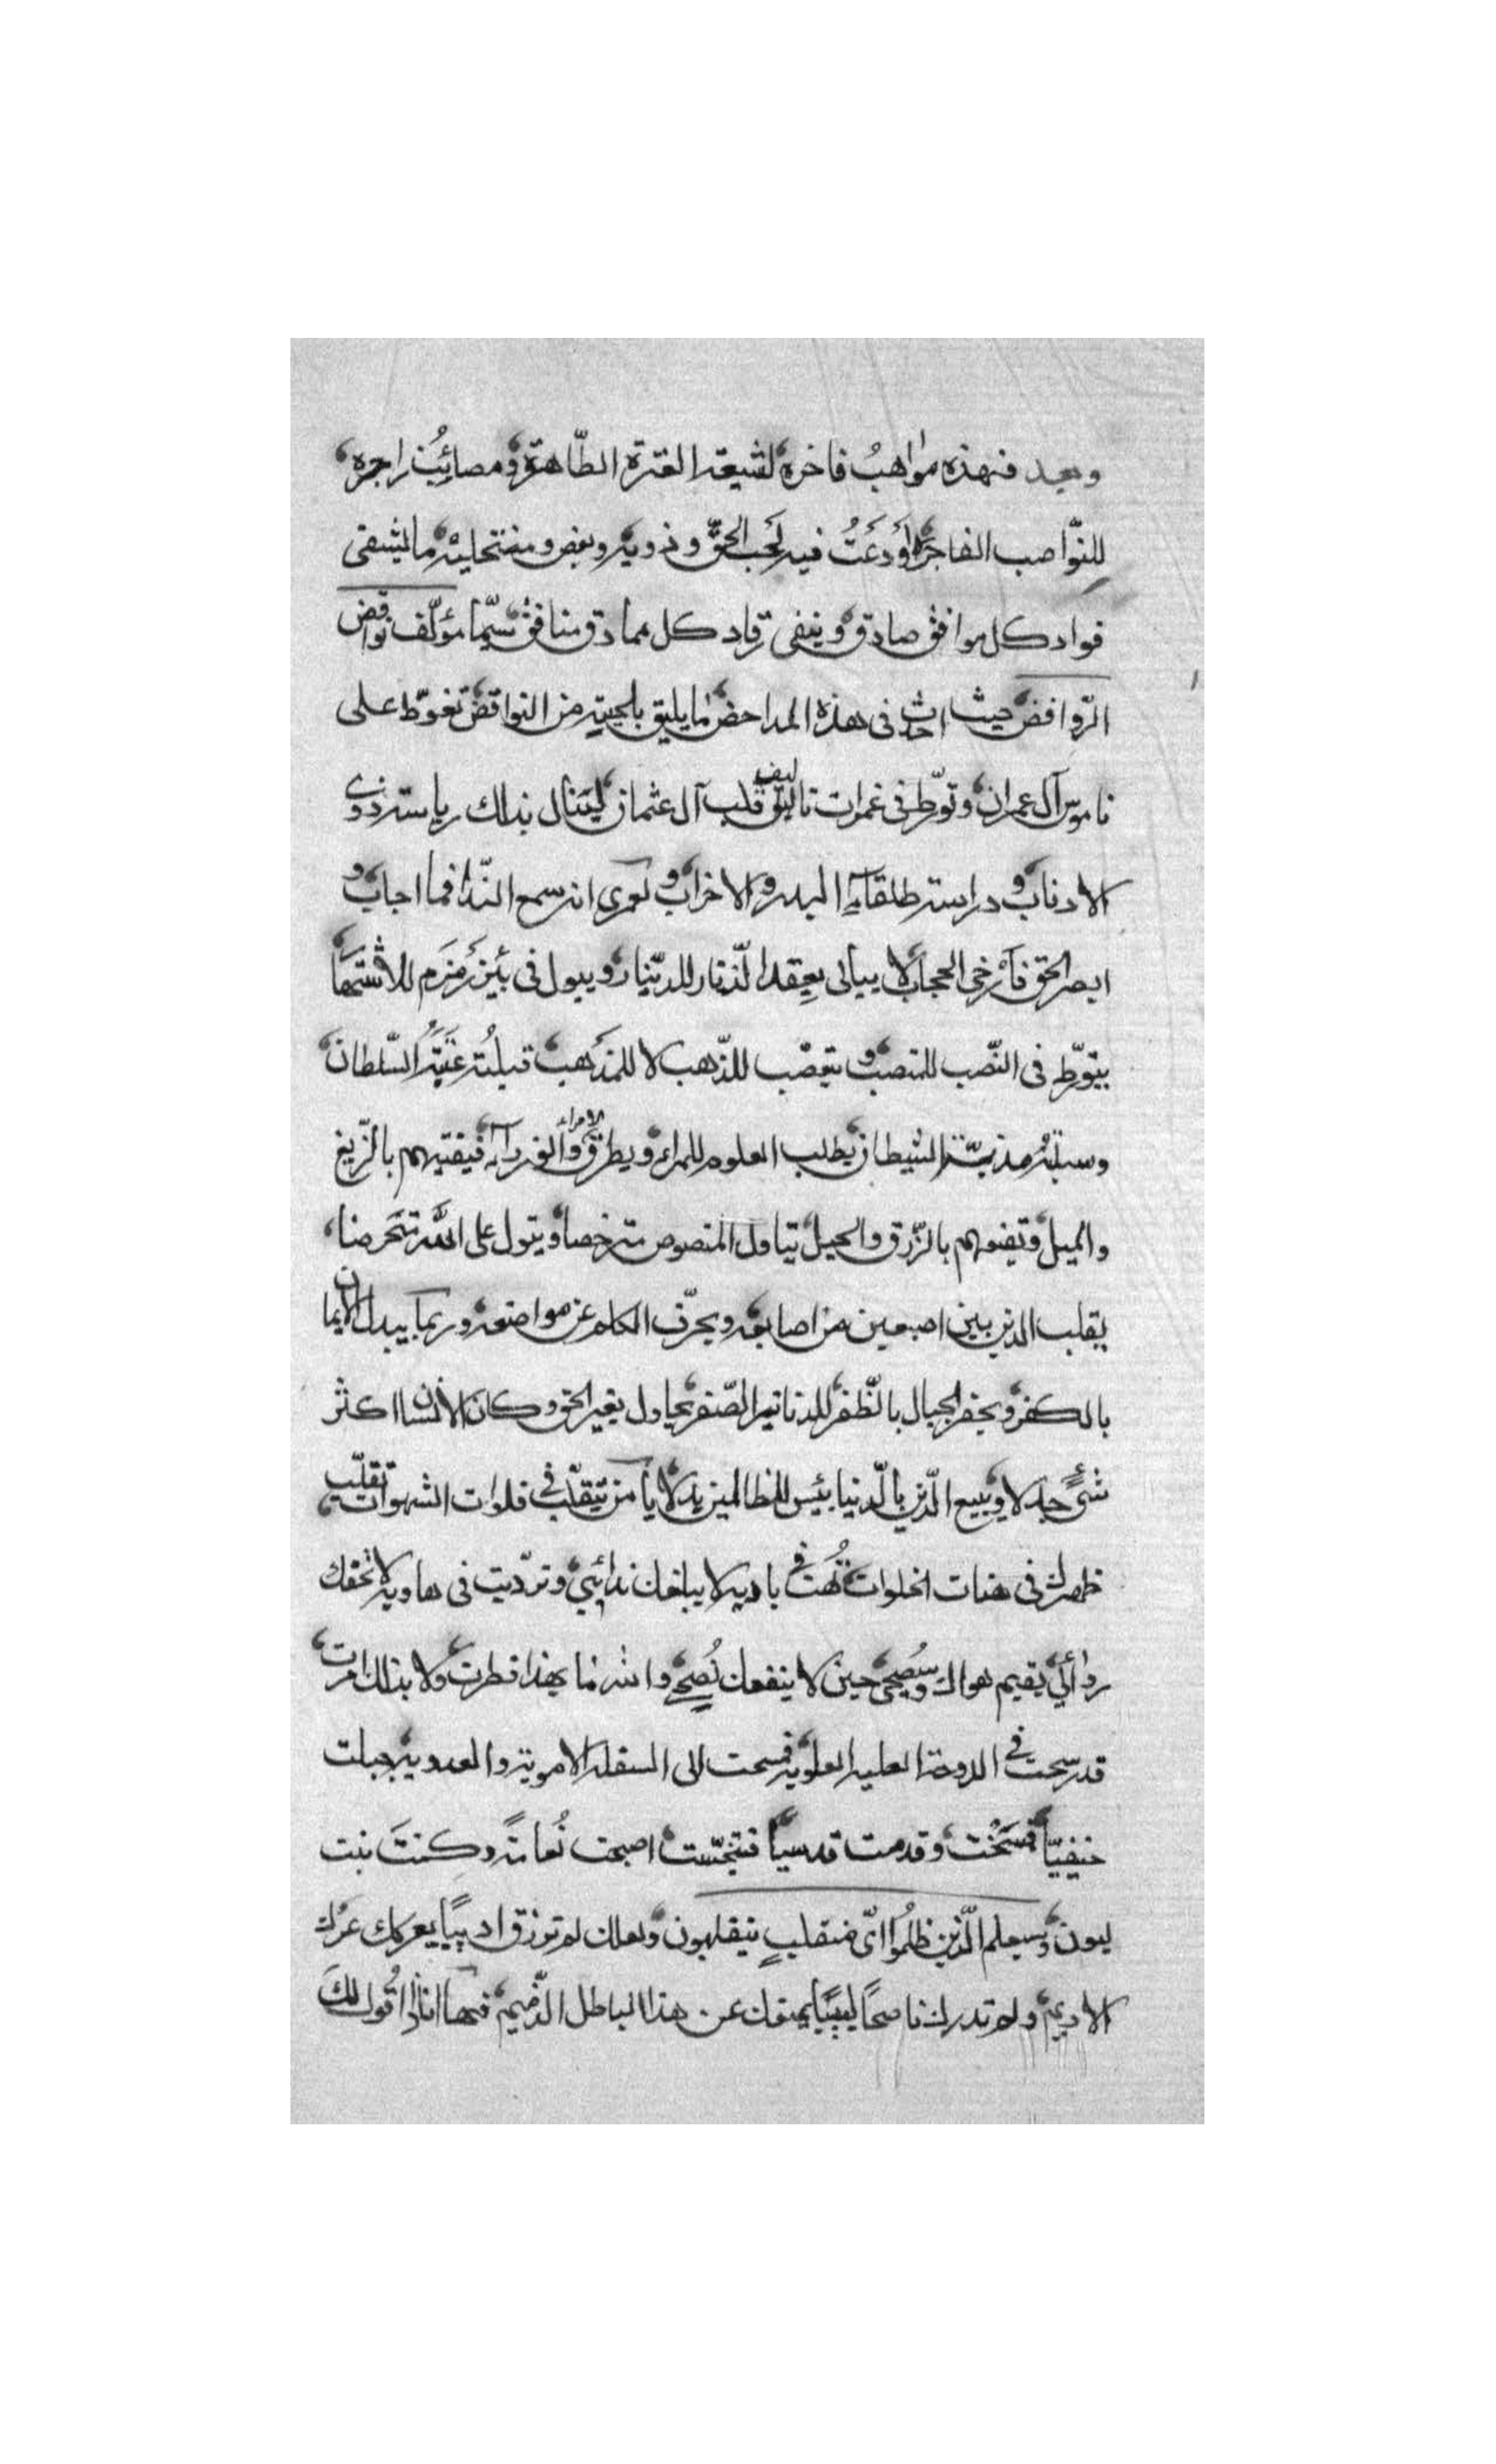 وبعد فهذه مواهبُ فاخره لشيعة العترة الطّاهرة ومصائبُ زاجره
للنّواصب الفاجرة أَودَعَتُ فيه لمحب الحقّ وذويه وبغض ومنتحليه ما يشفى
فواد كل موافق صادق وينفى رقاد كل مماذق منافق سيّما مؤلّف نواقض
الرّوافض حيث احدث فى هذه المداحض ما يليق بلحيته من النواقض تغوّط على
ناموس آل عمران وتورّط فى غمرات تاليف قلب آل عثمان لينال بذلك رياسة ذوى
الاذناب ودراسة طلقاء البدر والاحزاب ولعمرى انه سمع النّدا فما اجاب و
ابصر الحق فأرخى الحجاب لا يبالى بعقد الزّنار للدّينار ويبول فى بئر زمزم للاشتهار
يتورّط فى النّصب للمنصب ويتعصّب للذّهب لا للمذهب قبلته عتبة السّلطان
وسبلته مذبّة الشيطان يطلب العلوم للمراء ويطرق الامراء فيفتيهم بالزّيغ
والميل ويفتنهم بالزّرق والحيل يتاول المنصوص مترخصا ويقول على اللّه متخرصا
يقلب الدين بين اصبعين من اصابعه ويحرّف الكلم عن مواضعه وربما يبدل الايمان
بالكفر ويحفر الجبال بالظّفر للدنانير الصّفر يجادل بغير الحق وكان الانسان اكثر
شئٍ جدلا ويبيع الدّين بالدّنيا بئس للظالمين بدلا يا من تتقلّب فى فلوات الشهوات تقلّب
ظهرك فى هنات الخلوات تُهت فى باديه لا يبلغك ندائى وتردّيت فى هاويه لا تحقك
ردائى يقيم هواك وسُبحى حين لا ينفعك نُصحى والله ما بهذا فطرت ولا بذلك امرت
قد سبحت فى الدوحة العليه العلويه فمسحت الى السفلة الامويه والعدويه جبلت
حنيفيّاً فمسخت وقدمت قدسياً فتنجّست اصبحت نُعامةً وكنتَ بنت
لبون وسيعلم الّذين ظلمُوا اىّ منقلبٍ ينقلبون ولعلك لم ترزق اديباً يعركك عرك
الاديم ولم تدرك ناصحاً لبيباً يمنعك عن هذا الباطل الذّميم فها انا ذا اقُول لك